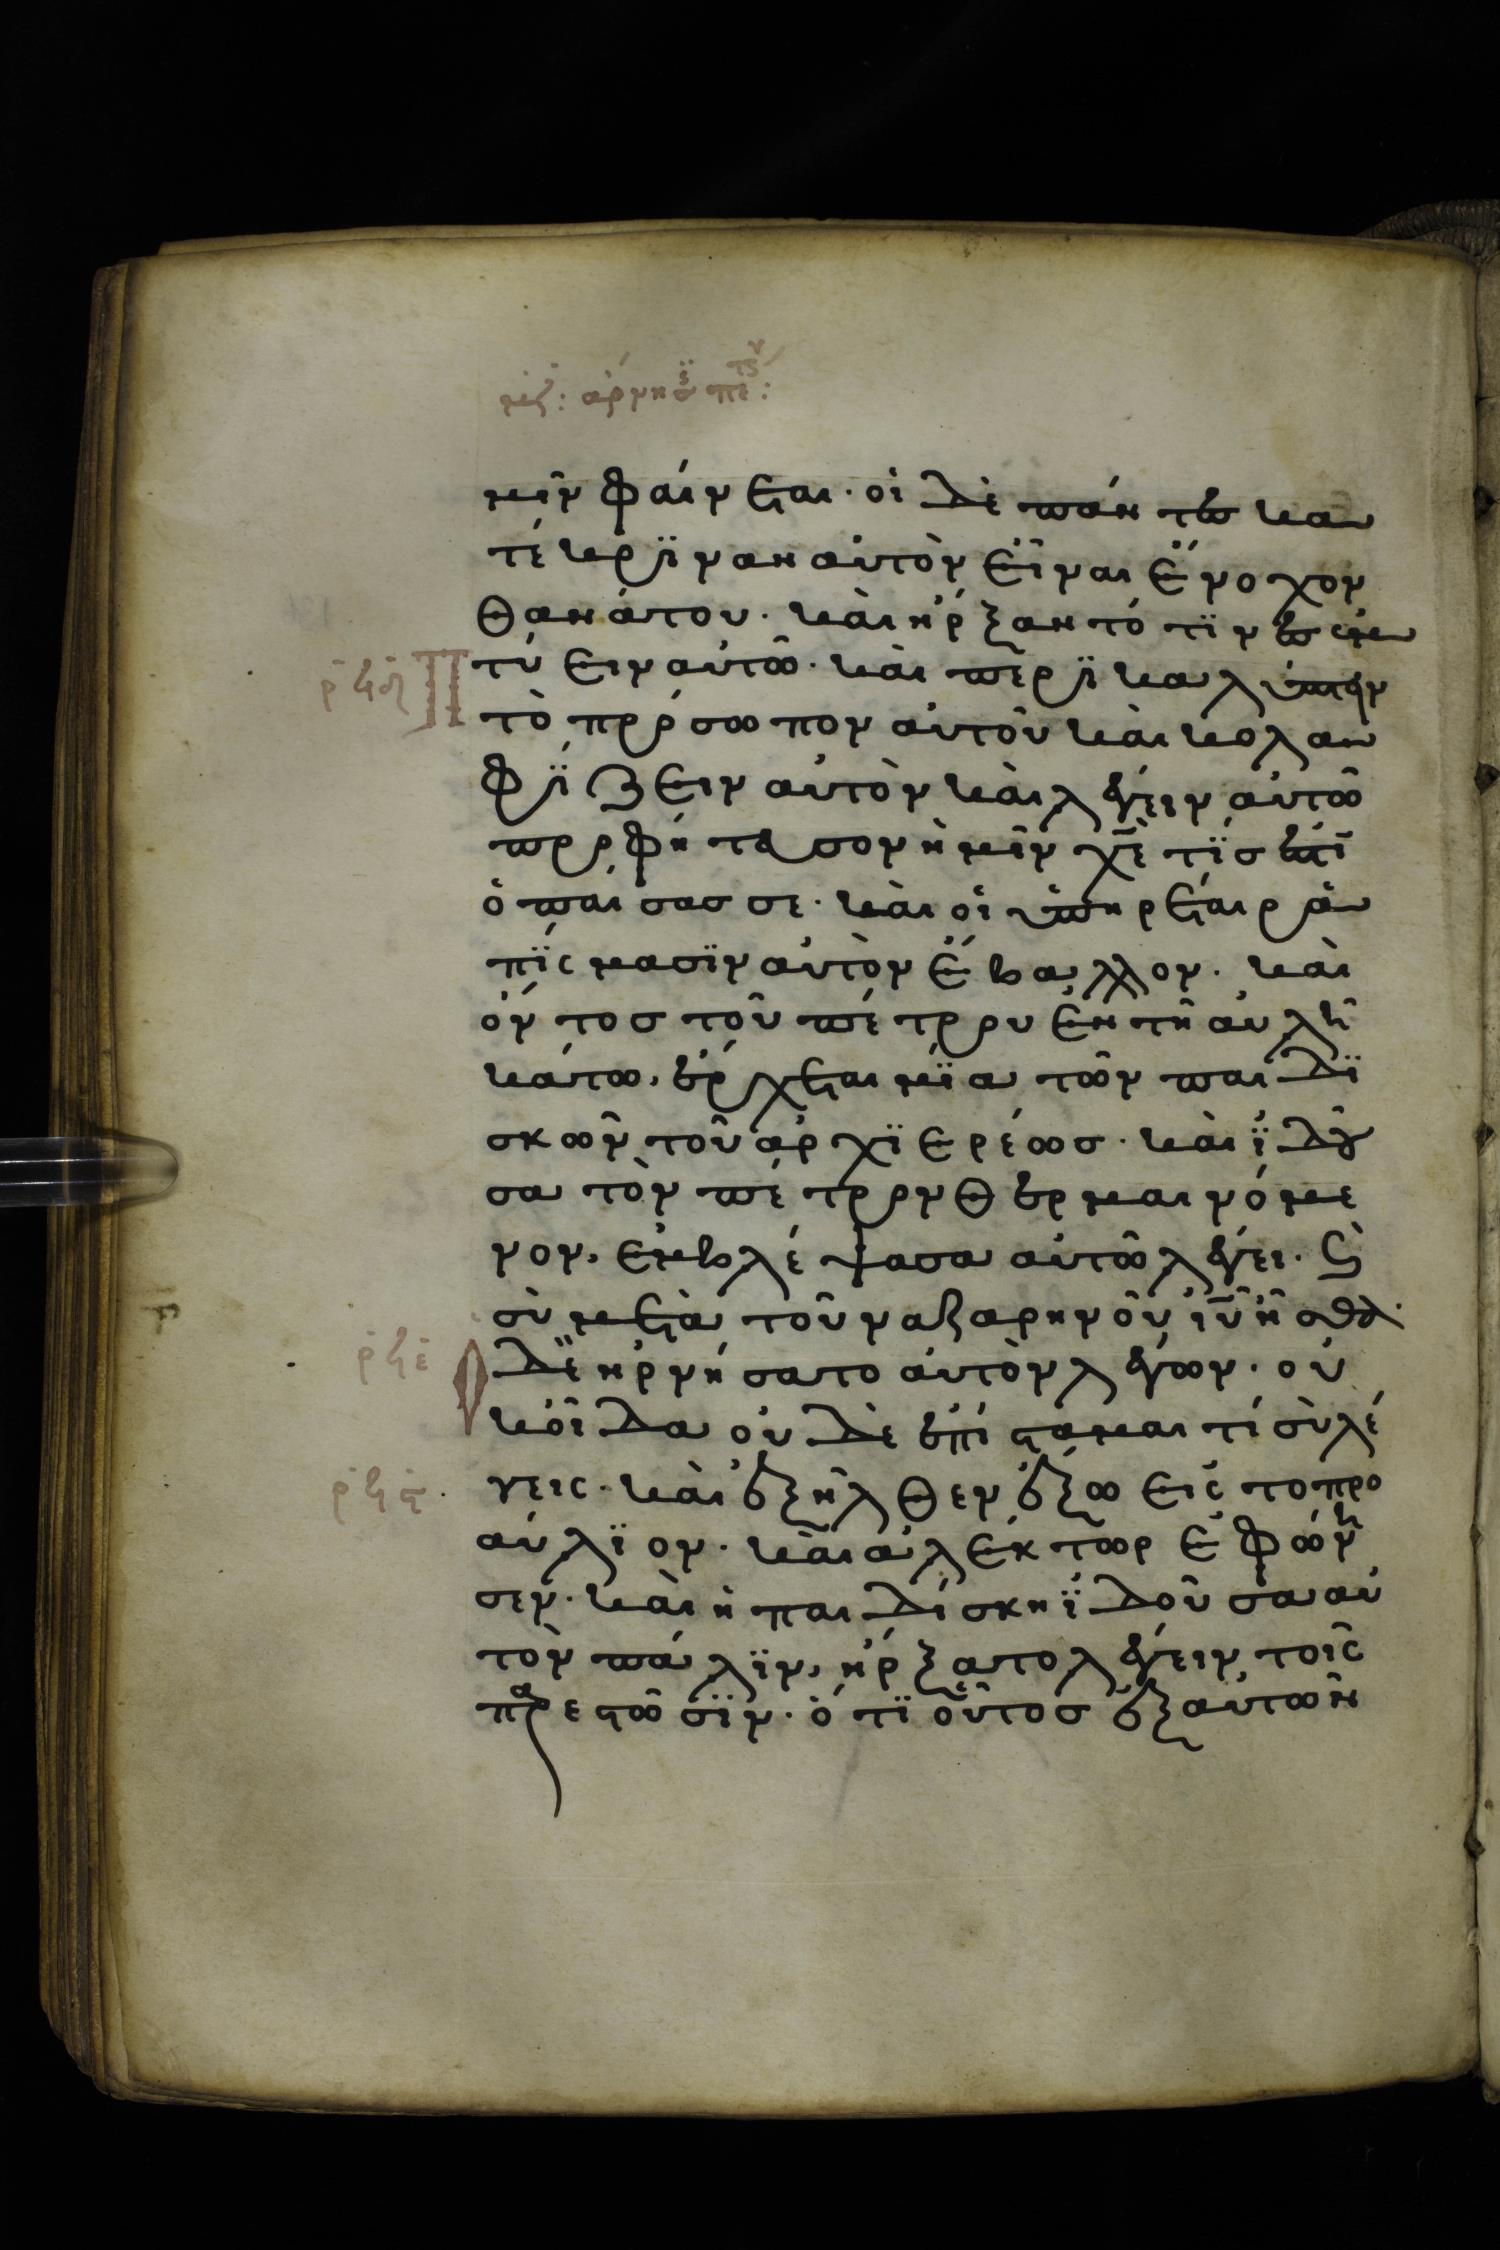 μζ: ἄρνησϊς πε τρου:
μῖν φαίνεται· οἱ δὲ πάντες κα
τέκρϊναν αὐτὸν εἶναι ἔνοχον
θανάτου· καὶ ἤρξαντό τϊνες ἐμ
ρϟδ πτύειν αὐτῶ· καὶ περϊκαλύπτειν
τὸ πρόσωπον αὐτοῦ καὶ κολα
φϊζειν αὐτὸν καὶ λέγειν αὐτῶ
προφήτευσον ἡμῖν χ̅ε̅ τίς ἐστϊ
ὁ παίσας σε· καὶ οἱ ὑπηρέται ρα
πίσμασϊν αὐτὸν ἔβαλλον· καὶ
ὄντος τοῦ πέτρου ἐν τῆ αὐλῆ
κάτω, ἔρχεται μϊα τῶν παιδϊ
σκῶν τοῦ ἀρχϊερέως· καὶ ϊδοῦ
σα τὸν πέτρον θερμαινόμε
νον, ἐμβλέψασα αὐτῶ λέγει· καὶ
σὺ μετὰ τοῦ ναζαρηνοῦ ι̅υ̅ ἦσθα·
ρϟε ὁ δὲ ἠρνήσατο αὐτὸν λέγων· οὐ
κ οἶδα οὐδὲ ἐπίσταμαι τί σὺ λέ
ρϟϛ γεις· καὶ ἐξῆλθεν ἔξω εἰς τὸ προ
αύλϊον· καὶ ἀλέκτωρ ἐφώνη
σεν· καὶ ἡ παιδίσκη ϊδοῦσα αὐ
τὸν πάλϊν, ἤρξατο λέγειν τοῖς
παρεστῶσϊν· ὅτϊ οὗτος ἐξ αὐτῶν